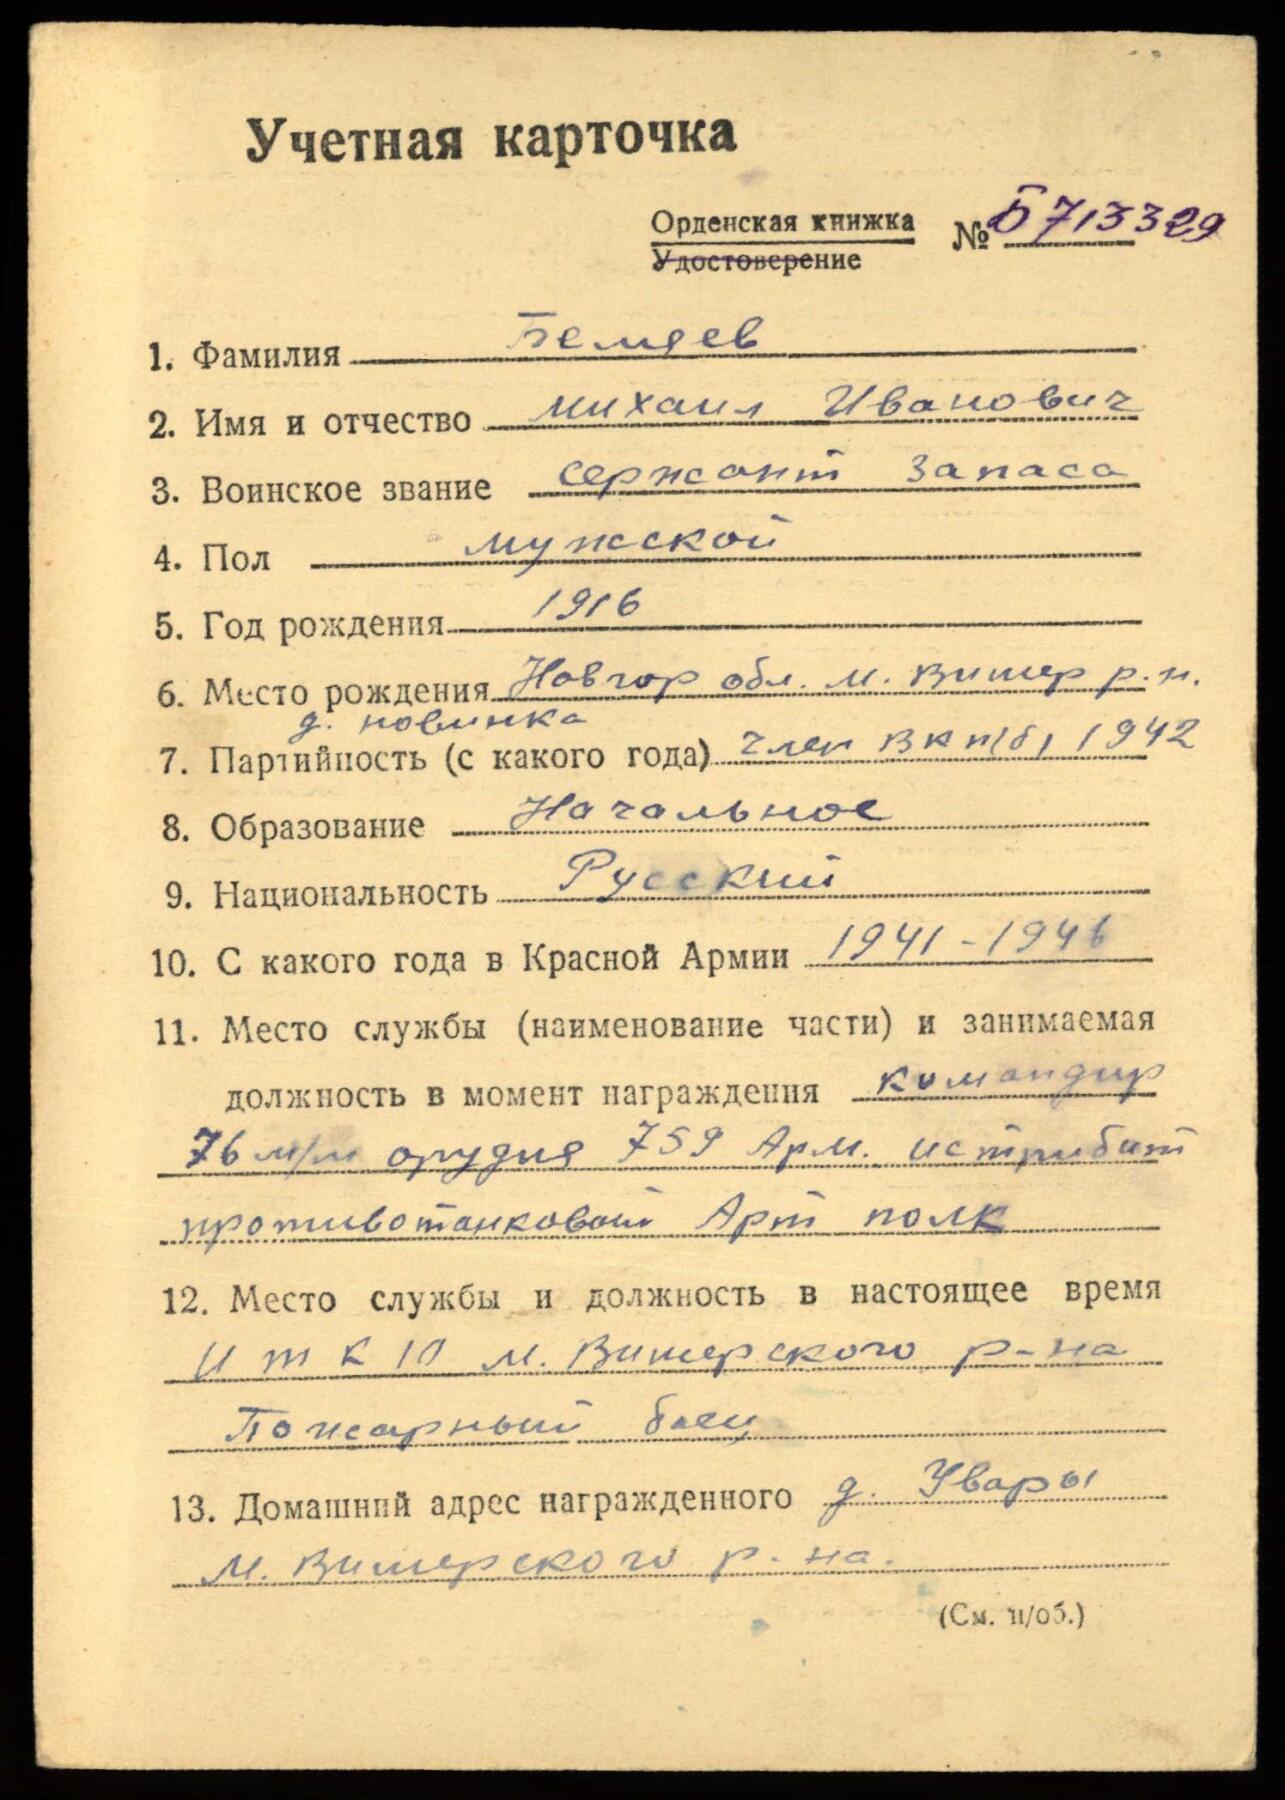 Учетная карточка
Орденская книжка
Удостоверение
№ Б713329
1. Фамилия Беляев
2. Имя и отчество Михаил Иванович
3. Воинское звание сержант запаса
4. Пол мужской
5. Год рождения 1916
6. Место рождения Новгор обл. М. Вишер р.н.
д. новинка
7. Партийность (с какого года) член вкп(б) 1942
8. Образование Начальное
9. Национальность Русский
10. С какого года в Красной Армии 1941-1946
11. Место службы (наименование части) и занимаемая
должность в момент награждения командир
76 м/м орудия 759 Арм. истрибит
противотанковый Арт полк
12. Место службы и должность в настоящее время
И т к 10 М. Вишерского р-на
Пожарный боец
13. Домашний адрес награжденного д. Увары
М. Вишерского р-на.
(См. н/об.)